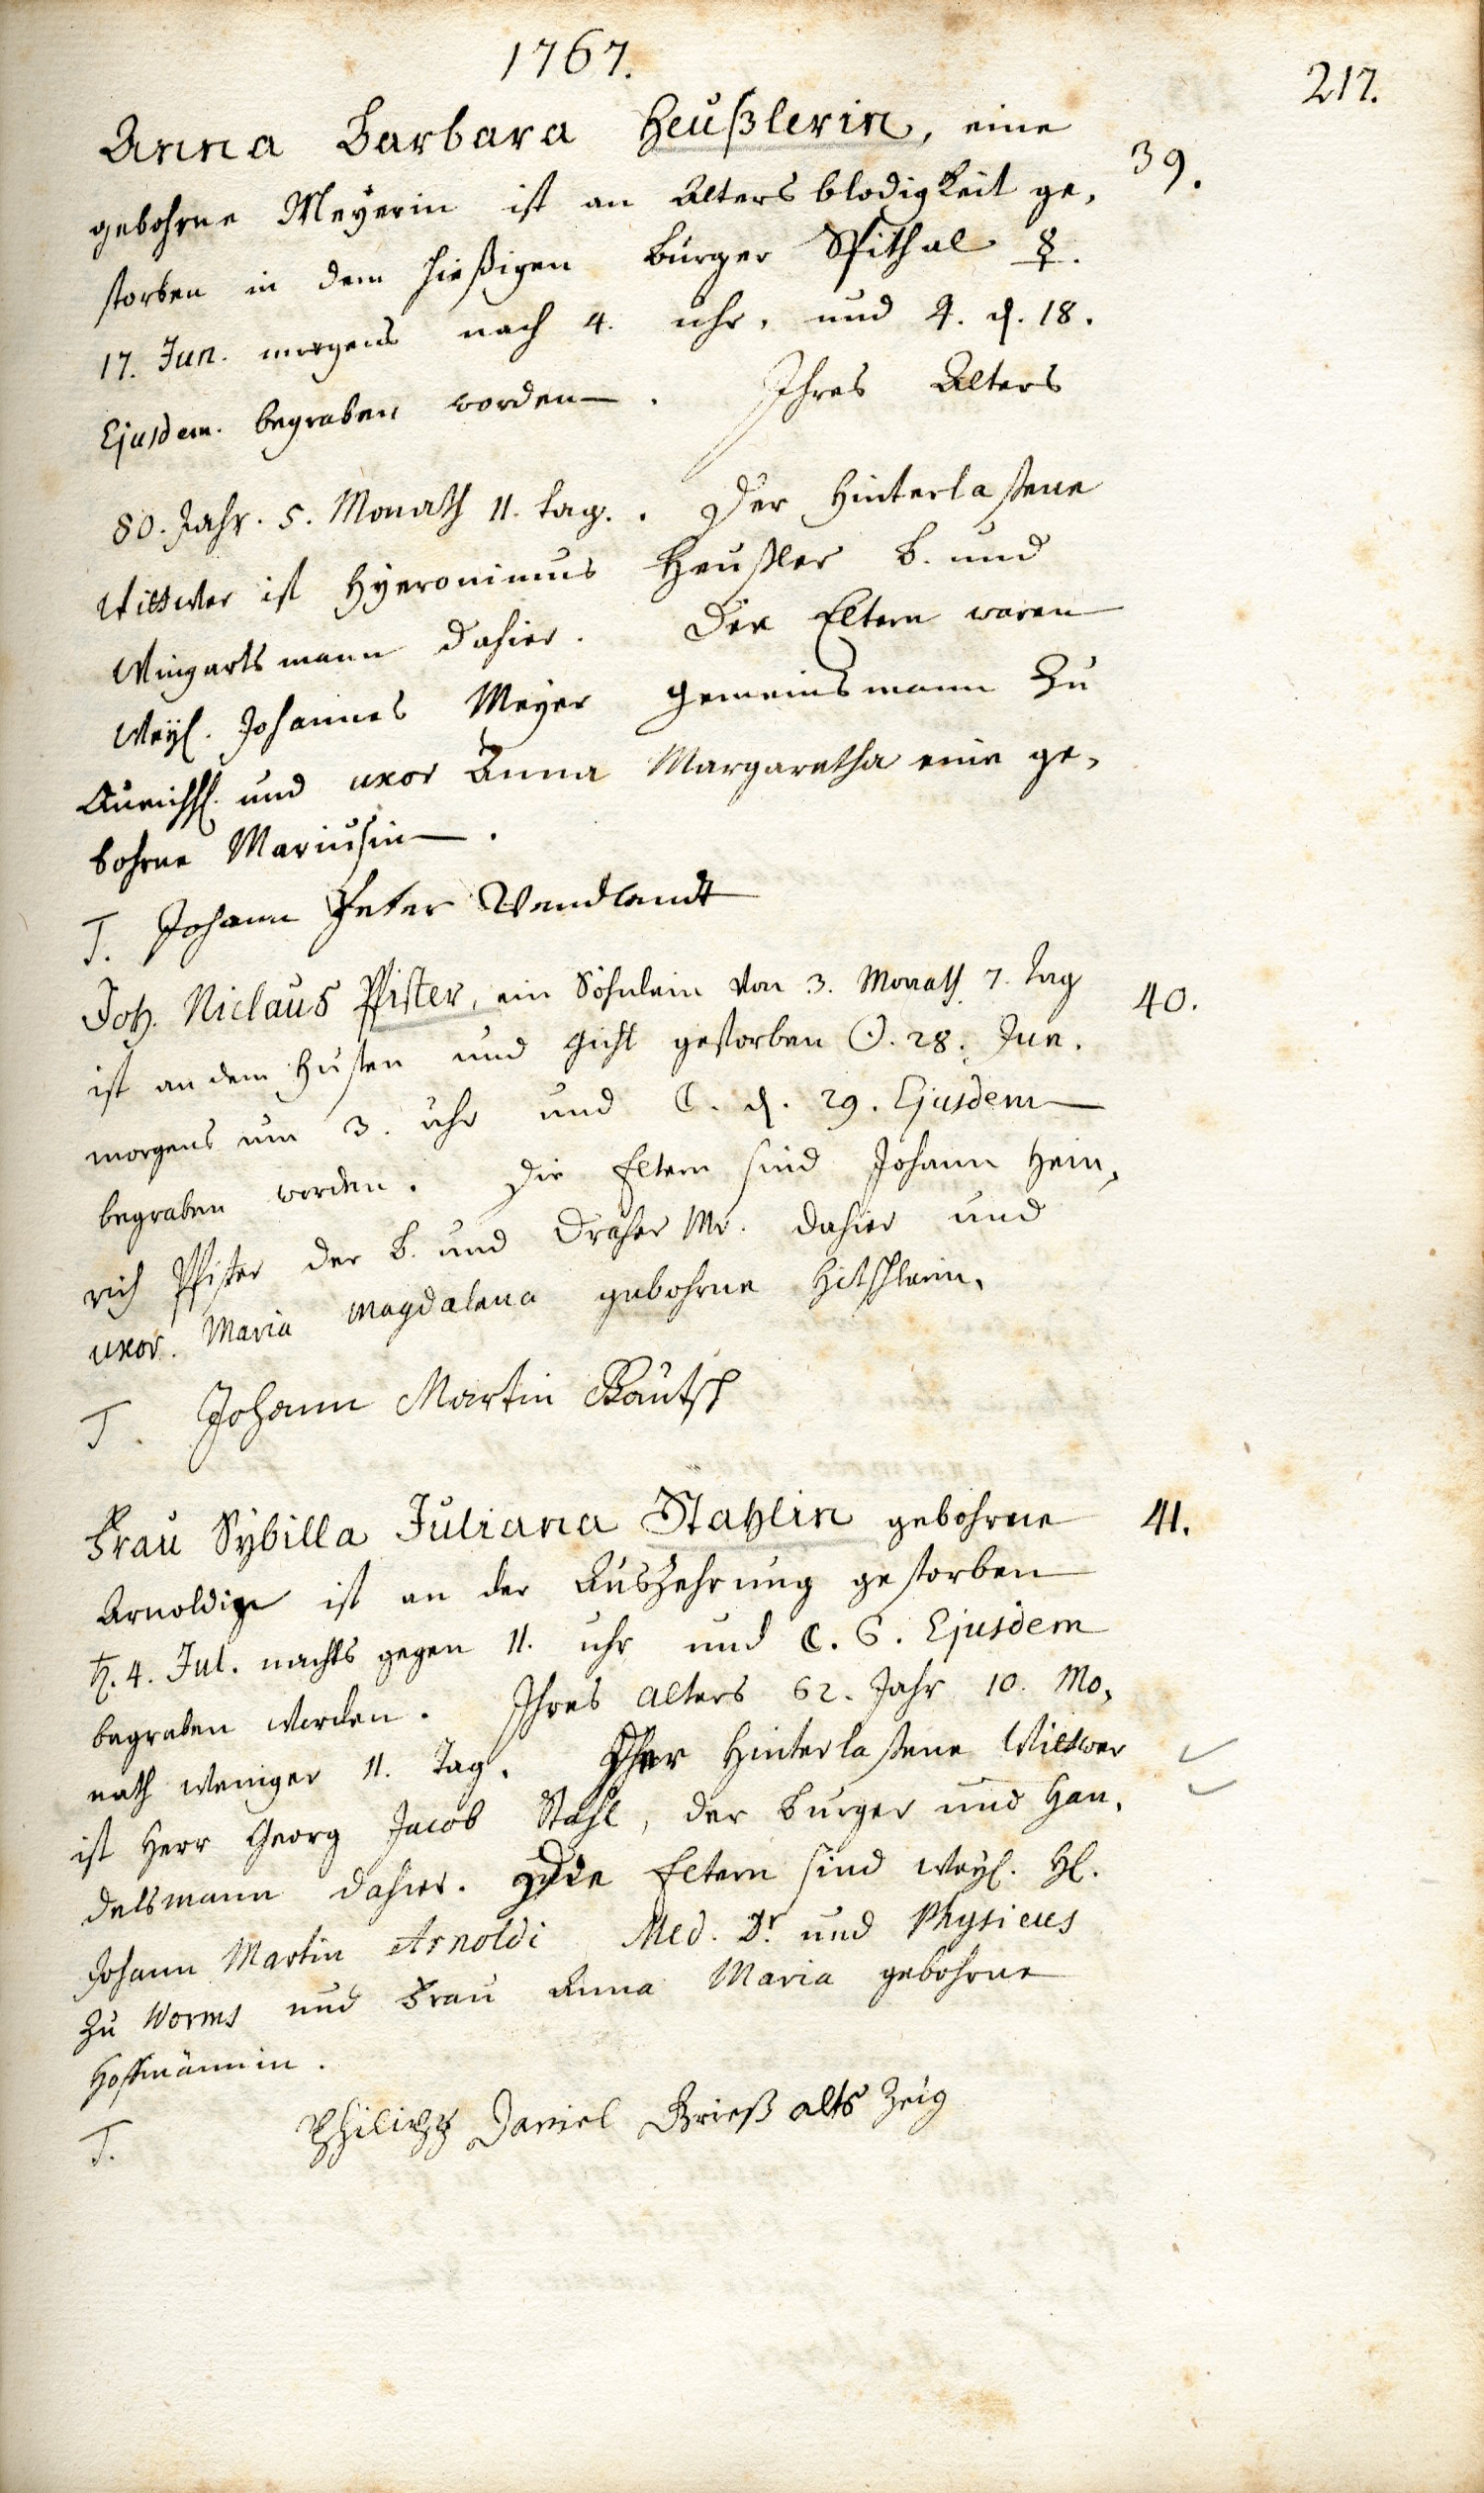 1767.
217.
Anna Barbara Heußlerin, eine
39.
gebohrne Meyerin ist an Alters blodigkeit ge,
storben in dem hießigen Bürger Spithal ☿.
17. Jun. morgens nach 4. uhr, und ♃. d. 18.
Ejusdem. begraben worden. Ihres Alters
80. Jahr. 5. Monath 11. tag. Der Hinterlaßene
Wittwer ist Hyeronimus Heußler B. und
Wingartsmann dahier. Die Eltern waren
Weyl. Johannes Meyer gemeinsmann zu
und uxor Anna Margaretha eine ge,
bohrne Mariusin.
T. Johann Peter Wendlandt
Joh. Niclaus Pfister, ein Söhnlein von 3. Monath 7. tag
40.
ist an dem Husten und gicht gestorben ☉. 28. Jun.
morgens um 3. uhr und ☾. d. 29. Ejusdem
begraben worden. Die Eltern sind Johann Hein,
rich Pfister der B. und Dräher Mr. dahier und
uxor. Maria Magdalena gebohrne
T. Johann Martin Bautsch
Frau Sybilla Juliana Stahlin gebohrne
41.
Arnoldin ist an der Auszehrung gestorben
♄. 4. Jul. nachts gegen 11. uhr und ☾. 6. Ejusdem
begraben worden. Ihres alters 62. Jahr 10. Mo,
nath weniger 11. Tag. Der Hinterlaßene Wittwer
ist Herr Georg Jacob Stahl, der Burger und Han,
delsmann dahier. Die Eltern sind weyl. H.
Johann Martin Arnoldi Med. Dr. und Physicus
zu Worms und Frau Anna Maria gebohrne
Hoffmännin.
T. Philipp Daniel Grieß alts Zeig